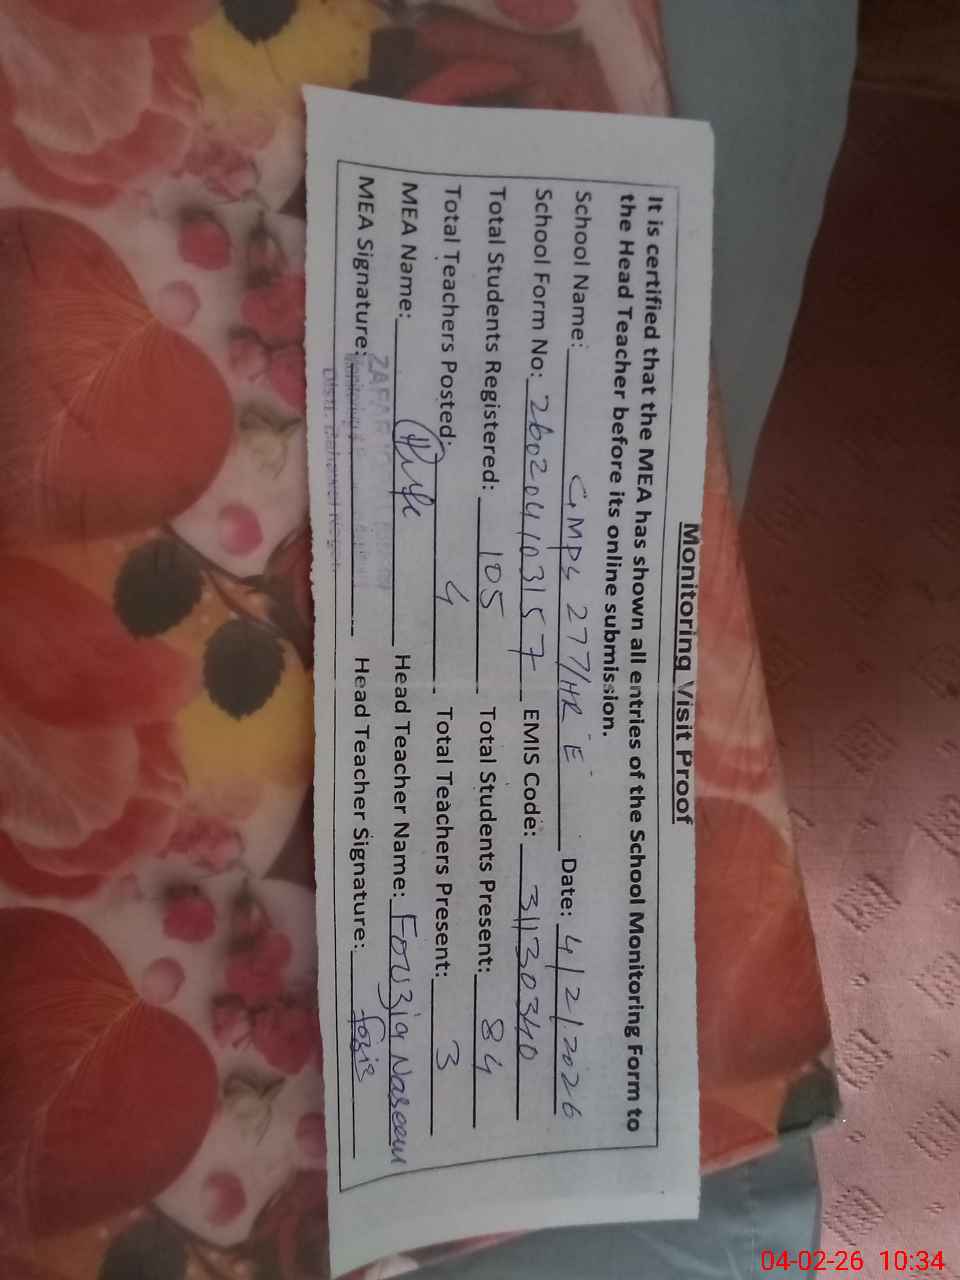 Monitoring Visit Proof
It is certified that the MEA has shown all entries of the School Monitoring Form to
the Head Teacher before its online submission.
School Name: GMPS 277/HR E Date: 4/2/2026
School Form No: 260204103157 EMIS Code: 31130340
Total Students Registered: 105 Total Students Present: 84
Total Teachers Posted: 4 Total Teachers Present: 3
MEA Name: Head Teacher Name: Fouzia Naseem
ZAFAR
MEA Signature: Head Teacher Signature: fozia
Distt. Bahawal Nagar
04-02-26 10:34